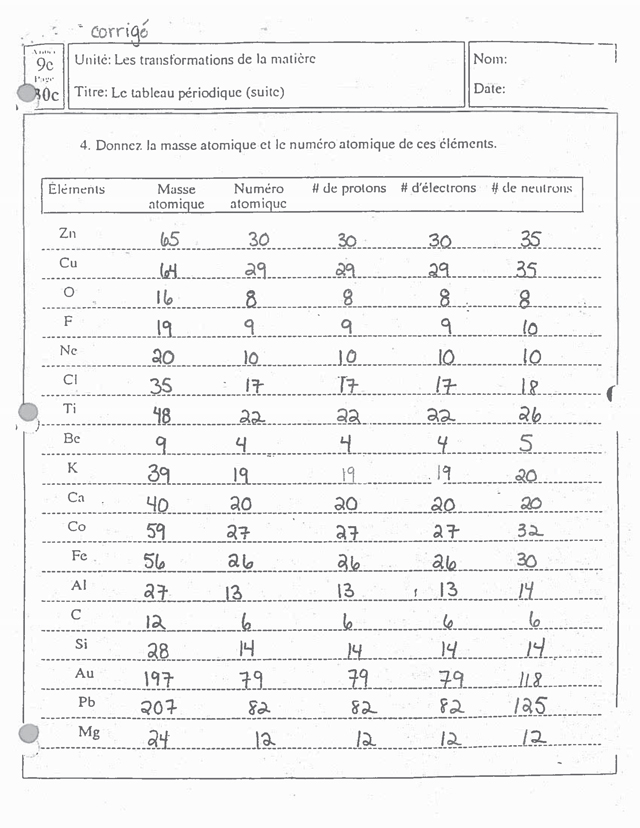 corrigé
Annex
9c
Page
30c
Unité: Les transformations de la matière
Titre: Le tableau périodique (suite)
Nom:
Date:
4. Donnez la masse atomique et le numéro atomique de ces éléments.
Éléments Masse atomique Numéro atomique # de protons # d'électrons # de neutrons
Zn 65 30 30 30 35
Cu 64 29 29 29 35
O 16 8 8 8 8
F 19 9 9 9 10
Ne 20 10 10 10 10
Cl 35 17 17 17 18
Ti 48 22 22 22 26
Be 9 4 4 4 5
K 39 19 19 19 20
Ca 40 20 20 20 20
Co 59 27 27 27 32
Fe 56 26 26 26 30
Al 27 13 13 13 14
C 12 6 6 6 6
Si 28 14 14 14 14
Au 197 79 79 79 118
Pb 207 82 82 82 125
Mg 24 12 12 12 12